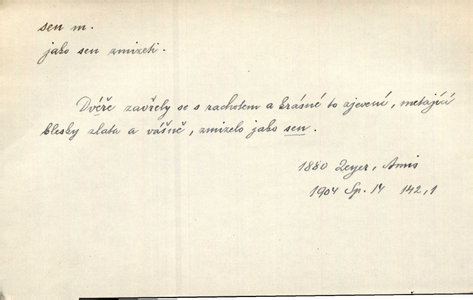 sen m.
jako sen zmizeti.
Dvéře zavřely se s rachotem a krásné to zjevení, metající
blesky zlata a vášně, zmizelo jako sen.
1880 Zeyer, Amis
1904 Sp. 14 142,1